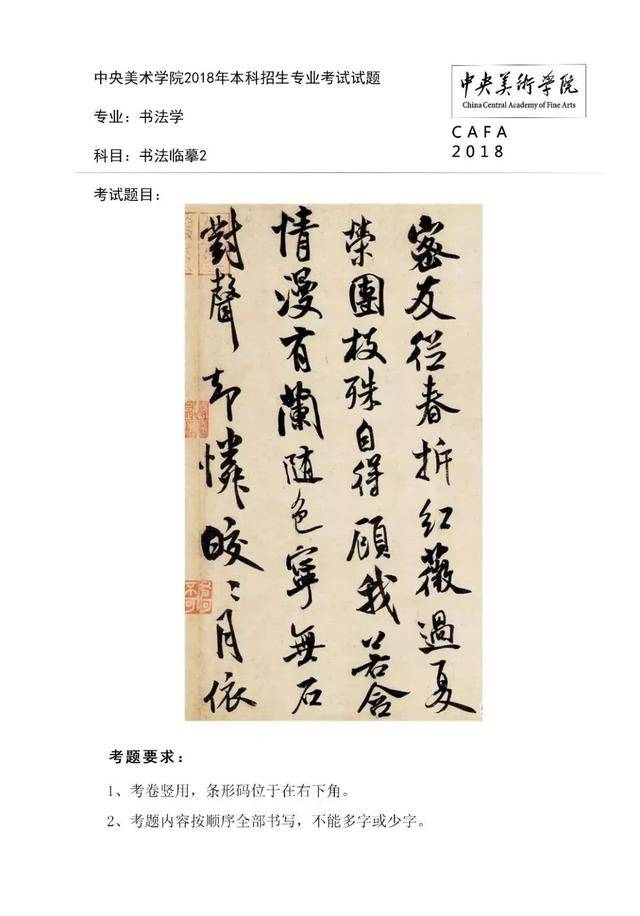 中央美术学院2018年本科招生专业考试试题
专业：书法学
科目：书法临摹2
中央美術學院
China Central Academy of Fine Arts
CAFA
2018
考试题目：
密友從春拆紅薇過夏
榮團枝殊自得顧我若含
情漫有蘭隨色寧無石
對聲却憐皎〻月依
考题要求：
1、考卷竖用，条形码位于在右下角。
2、考题内容按顺序全部书写，不能多字或少字。